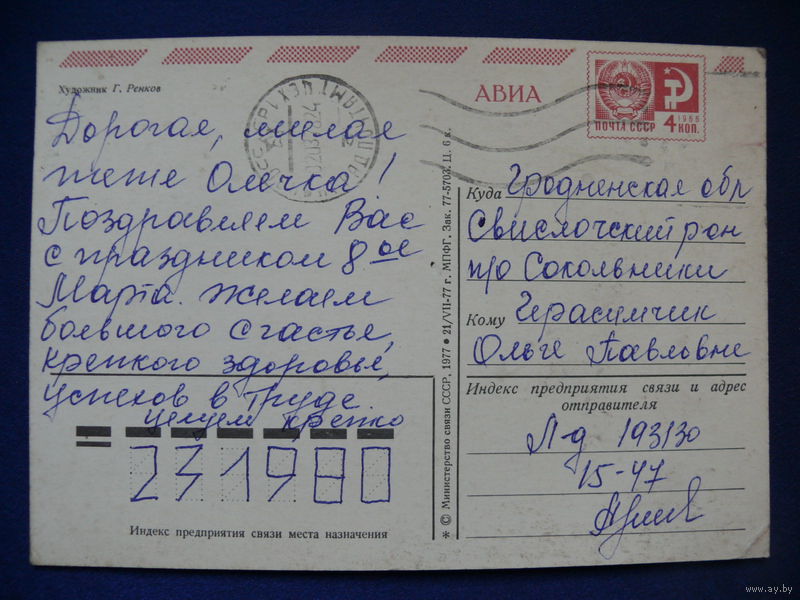 Художник Г. Ренков
Дорогая, милая
тётя Олечка!
Поздравляем Вас
с праздником 8ое
Марта. Желаем
большого счастья,
крепкого здоровья,
успехов в Труде.
целуем крепко
231980
Индекс предприятия связи места назначения
* © Министерство связи СССР, 1977 ● 21/VII-77 г., МПФГ, Зак. 77-5703. Ц. 6 к.
АВИА
ПОЧТА СССР
1966
4 КОП.
Куда Гродненская обл
Свислочский рон
п/о Сокольники
Кому Герасимчик
Ольге Павловне
Индекс предприятия связи и адрес
отправителя
Л-д 193130
15-47
www.ay.by